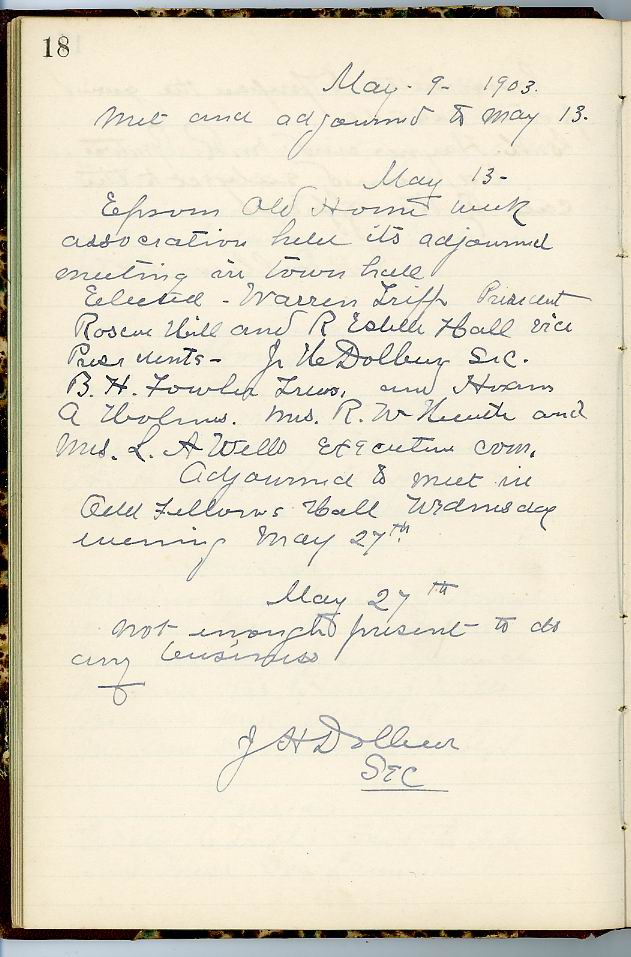 18
May - 9 - 1903.
Met and adjourned to May 13.
May 13 -
Epsom Old Home week
association held its adjourned
meeting in town hall
Eelected - Warren Tripp President
Roscoe Hill and R Estelle Hall vice
Presidents - J H Dolbeer Sec.
B. H. Fowler Treas, and Hiram
A Holmes. Mrs. R. W and
Mrs. L. A Wells Executive com.
Adjourned to meet in
Odd Fellows Hall Wednesday
evening May 27th.
May 27th
Not enough present to do
any business
J H Dolbeer
Sec